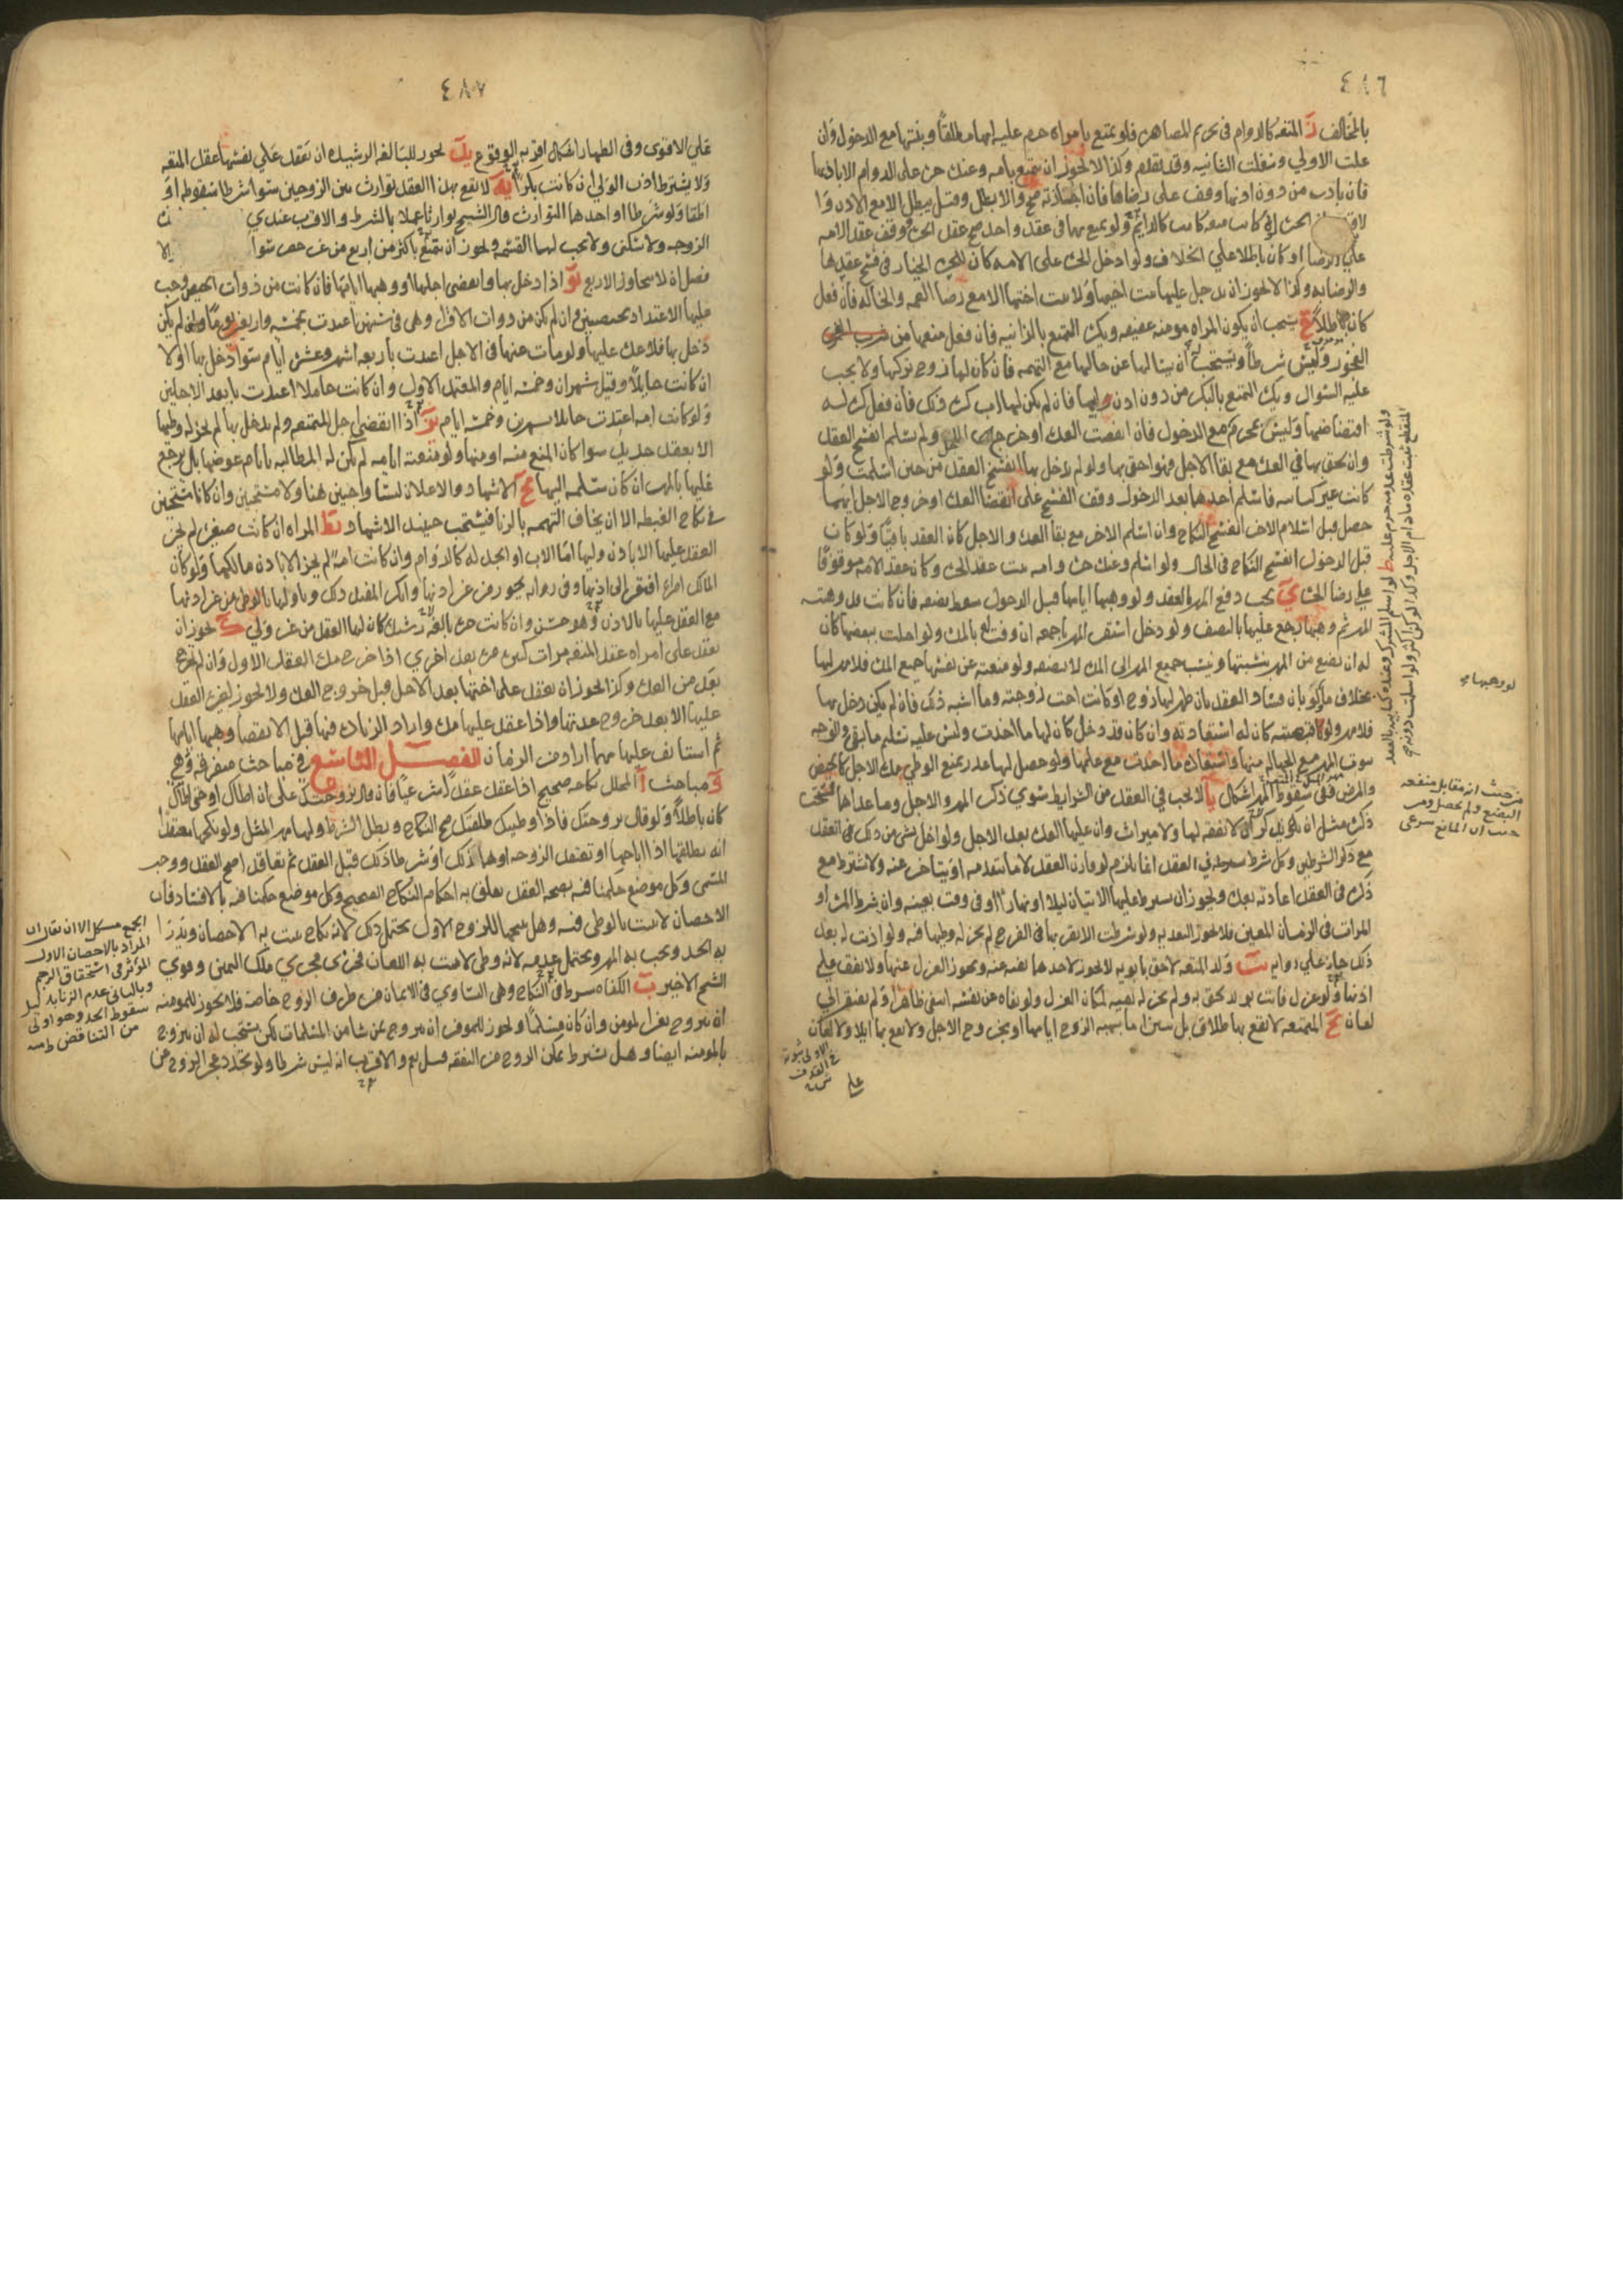 ٤٨٦
بالمخالف ز المتعه كالدوام فى تحريم المصاهره فلو تمتع بامراه حرم عليه امها مطلقا وبنتها مع الدخول وان
علت الاولي ونفلت الثانيه وقد تقدم وكذا لا يجوز ان يتمتع بامه وعنده حره على الدوام الا باذنها
فان بادر من دون اذنها وقف على رضاها فان اجازته صح والا بطل وقيل يبطل الا مع الاذن
عقد واحد صح عقد الحره ووقف عقد الامه
علي الرضا او كان باطلا علي الخلاف ولو ادخل الحره على الامه كان للحره الخيار فى فسخ عقدها
والرضا به وكذا لا يجوز ان يدخل عليها بنت اخيها ولا بنت اختها الا مع رضا العمه والخاله فان فعل
كان باطلا ح يستحب ان يكون المراه مومنه عفيفه ويكره التمتع بالزانيه فان فعل منعها من
الفجور وليس شرطا ويستحب ان يسالها عن حالها مع التهمه فان كان لها زوج تركها ولا يجب
عليه السوال ويكره التمتع بالبكر من دون اذن وليها فان لم يكن لها اب كره ذلك فان فعل كره له
افتضاضها وليس بمحرم
وان لحق بها في العده مع بقا الاجل فهو احق بها ولو لم يدخل بها انفسخ العقد من حين اسلمت ولو
كانت غير كتابيه فاسلم احدهما بعد الدخول وقف الفسخ على انقضا العده او خروج الاجل ايهما
حصل قبل اسلام الاخر انفسخ النكاح وان اسلم الاخر مع بقا العده والاجل كان العقد باقيا ولو كان
قبل الدخول انفسخ النكاح فى الحال ولو اسلم وعنده حره وامه ثبت عقد الحره وكان عقد الامه موقوفا
على رضا الحره ي يجب دفع المهر بالعقد ولو وهبها ايامها قبل الدخول سقط نصفه فان كانت قد وهبته
المهر ثم وهبها رجع عليها بالنصف ولو دخل استقر المهر باجمعه ان وفت له بالمده ولو اخلت ببعضها كان
له ان يضع من المهر بنسبتها ونسب جميع المهر الى المده لا نصفه ولو منعته عن نفسها جميع المده فلا مهر لها
بخلاف ما لو بان فساد العقد بان ظهر لها زوج او كانت اخت زوجته وما اشبه ذلك فان لم يكن دخل بها
فلا مهر ولو قبضته كان له استعادته وان كان قد دخل كان لها ما اخذت وليس عليه تسليم ما بقي والوجه
ثبوت المهر مع الجهاله منها واستعادة ما اخذت مع علمها ولو حصل لها عذر يمنع الوطي مدة الاجل كالحيض
والمرض ففى سقوط المهر اشكال يا لا يجب في العقد من الشرايط سوى ذكر المهر والاجل وما عداهما يستحب
ذكره مثل ان لا نفقه لها ولا ميراث وان عليها العده بعد الاجل ولو اخل بشى من ذلك صح العقد
مع ذكر الشرطين وكل شرط يشرطه في العقد انما يلزم لو قارن العقد لا ما يتقدمه او يتاخر عنه ولا يشترط مع
ذكره فى العقد اعادته بعده ويجوز ان يشرط عليها الاتيان ليلا او نهارا او فى وقت بعينه وان يشرط المره او
المرات فى الزمان المعين فلا يجوز التعديه ولو شرطت الا يقربها فى الفرج لم يجز له وطيها فيه ولو اذنت له بعد
ذلك جاز علي روايه يب ولد المتعه لاحق بابويه لا يجوز لاحدهما نفيه عنه ويجوز العزل عنها ولا يقف على
اذنها ولو عزل فاتت بولد لحق به ولم يجز له نفيه لمكان العزل ولو نفاه عن نفسه انتفى ظاهرا ولم يفتقر الي
لعان يج المتمتعه لا يقع بها طلاق بل تبين اما بهبة الزوج ايامها او بخروج الاجل ولا يقع بها ايلا ولا لعان
على
لو وهبها
من حيث انه مقابل منفعه
البضع ولم يحصل ومن
حيث ان المانع شرعى
٤٨٧
علي الاقوى وفى الظهار اشكال اقربه الوقوع يد يجوز للبالغه الرشيده ان تعقد علي نفسها عقد المتعه
ولا يشترط اذن الولي وان كانت بكرا يه لا يقع بهذا العقد توارث بين الزوجين سوا شرطا سقوطه او
اطلقا ولو شرطا او احدهما التوارث قال الشيخ توارثا عملا بالشرط والاقرب عندي
الزوجه ولا سكنى ولا يجب لها القسمه ويجوز ان يتمتع باكثر من اربع من غير حصر سوا
فصل ان لا يتجاوز الاربع يو اذا دخل بها وانقضى اجلها او وهبها ايامها فان كانت من ذوات الحيض وجب
عليها الاعتداد بحيضتين وان لم يكن من ذوات الاقرا وهى فى سن من تحيض اعتدت بخمسه واربعين يوما وان لم يكن
دخل بها فلا عده عليها ولو مات عنها فى الاجل اعتدت باربعه اشهر وعشره ايام سوا دخل بها او لا
ان كانت حايلا وقيل شهران وخمسه ايام والمعتمد الاول وان كانت حاملا اعتدت بابعد الاجلين
ولو كانت امه اعتدت حايلا بشهرين وخمسه ايام يز اذا انقضى اجل المتمتعه ولم يدخل بها لم يجز له وطيها
الا بعقد جديد سوا كان المنع منه او منها ولو منعته ايامه لم يكن له المطالبه بايام عوضها بل يرجع
عليها بالمهر ان كان سلمه اليها يح الاشهاد والاعلان ليسا واجبين هنا ولا مستحبين وان كانا مستحبين
فى نكاح الغبطه الا ان يخاف التهمه بالزنا فيستحب حينيذ الاشهاد يط المراه ان كانت صغيره لم يجز
العقد عليها الا باذن وليها اما الاب او الجد له كالدوام وان كانت امه لم يجز الا باذن مالكها ولو كان
المالك امراه افتقر الى اذنها وفى روايه يجوز من غير اذنها وانكر المفيد ذلك وتاولها بالوطي من غير اذنها
مع العقد عليها بالاذن وهو حسن وان كانت حره بالغه رشيده كان لها العقد من غير ولي ك يجوز ان
يعقد على امراه عقد المتعه مرات كثيره مره بعد اخري اذا خرج مدة العقد الاول وان لم تخرج
بعد من العده وكذا يجوز ان يعقد على اختها بعد الاجل قبل خروج العده ولا يجوز لغيره العقد
عليها الا بعد خروج عدتها واذا عقد عليها مده واراد الزياده فيها قبل الانقضا وهبها ايامها
ثم استانف عليها مهما اراد من الزمان الفصـــل التاسع فى مباحث متفرقه وهي
و مباحث ا المحلل نكاحه صحيح اذا عقد عقدا شرعيا فان قال تزوجتك على ان احلك او حتى احلك
كان باطلا ولو قال تزوجتك فاذا وطيتك طلقتك صح النكاح وبطل الشرط ولها مهر المثل ولو نكحها معتقدا
انه يطلقها اذا اباحها او تعتقد الزوجه او هما ذلك او شرطا ذلك قبل العقد ثم تعاقدا صح العقد ووجب
المسمى وكل موضع حكمنا فيه بصحه العقد تعلق به احكام النكاح الصحيح وكل موضع حكمنا فيه بالافساد فان
الاحصان لا يثبت بالوطى فيه وهل يبيحها للزوج الاول يحتمل ذلك لانه نكاح يثبت به الاحصان ويدرا
به الحد ويجب به المهر ويحتمل عدمه لانه وطى لا يثبت به اللعان فجرى مجري ملك اليمين وقوي
الشيخ الاخير ب الكفاه شرط فى النكاح وهى التساوي فى الايمان من طرف الزوج خاصة فلا يجوز للمومنه
ان تتزوج بغير المومن وان كان مسلما ويجوز للمومن ان يتزوج بمن شا من المسلمات لكن يستحب له ان يتزوج
بالمومنه ايضا وهل يشترط تمكن الزوج من النفقه قيل نعم والاقرب انه ليس شرطا ولو تجدد عجز الزوج عن
الجمع مشكل الا ان يقال ان
المراد بالاحصان الاول
المؤثر فى استحقاق الرجم
وبالثانى عدم الزنا بدليل
سقوط الحد وهو اولى
من التناقض